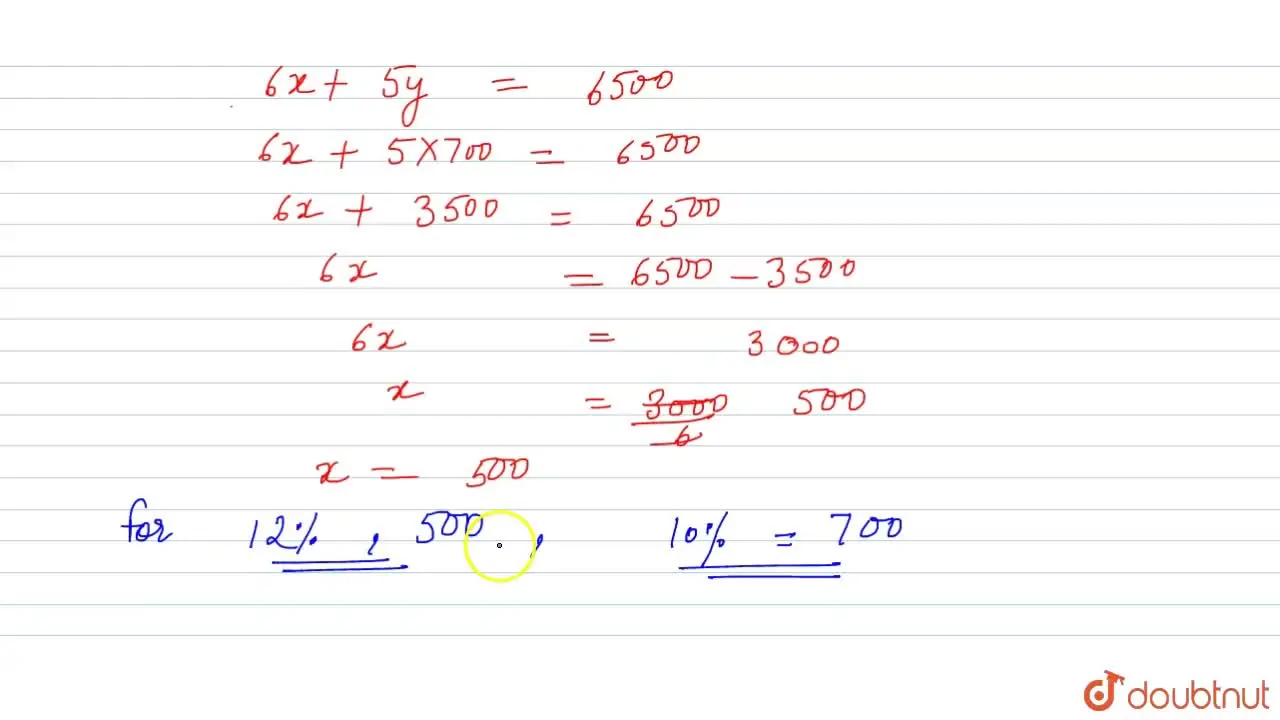 6x + 5y = 6500
6x + 5×700 = 6500
6x + 3500 = 6500
6x = 6500 - 3500
6x = 3000
x = 3000/6 500
x = 500
for 12% , 500 , 10% = 700
doubtnut